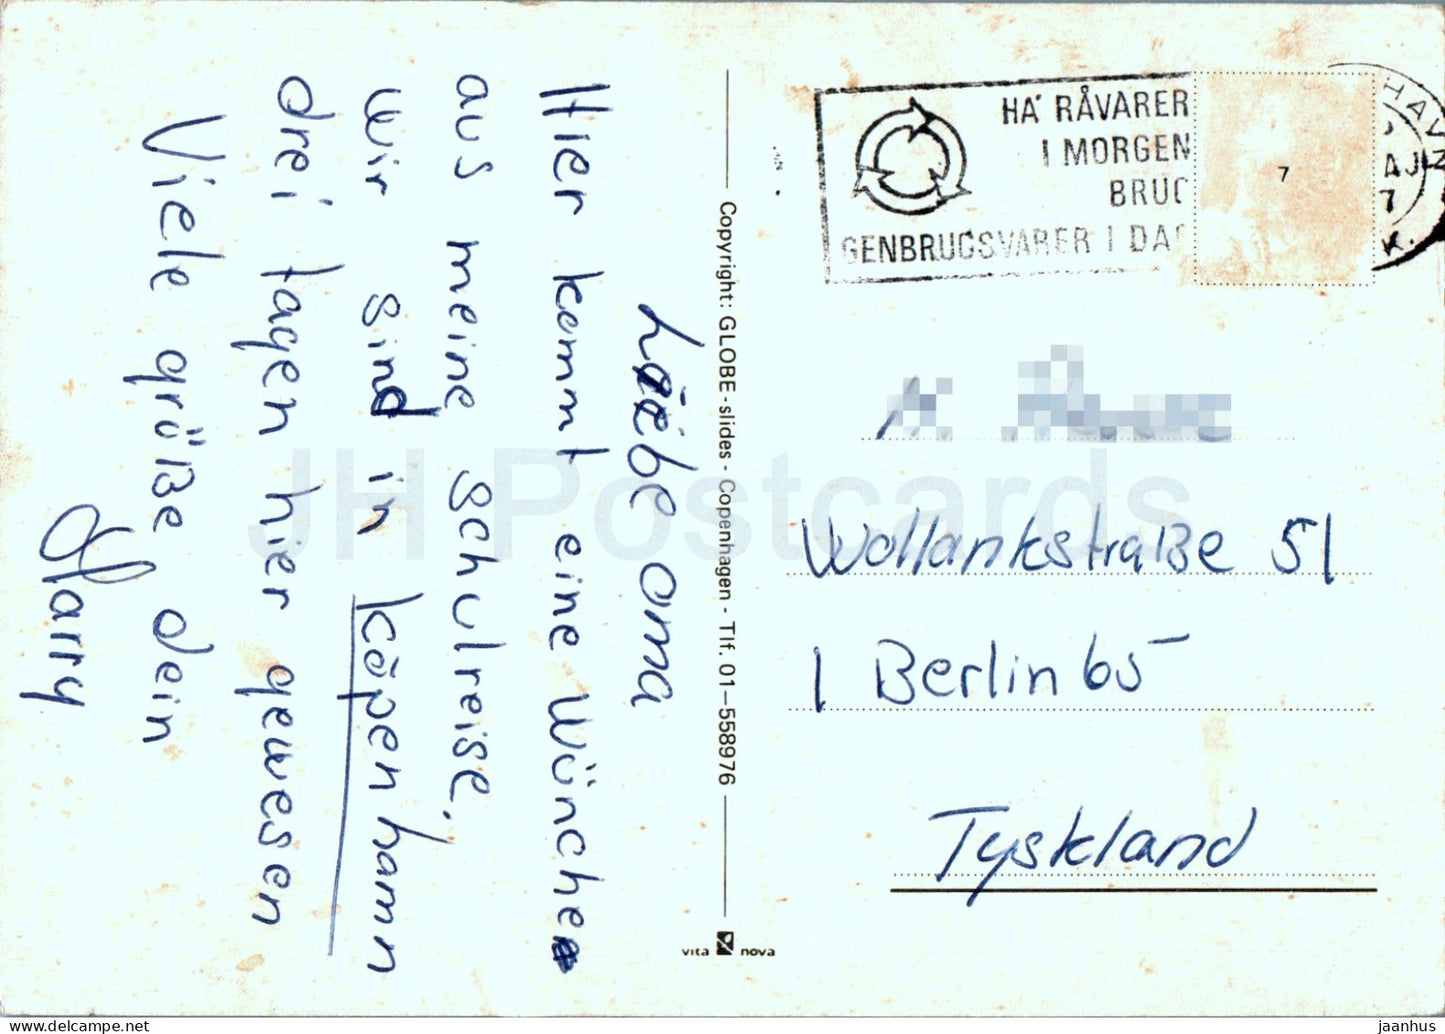 Liebe oma
Hier kommt eine Wünche
aus meine schulreise,
wir sind in köpenhamn
drei tagen hier gewesen
Viele grüße dein
Harry
Copyright: GLOBE-slides - Copenhagen - Tlf. 01–558976
vita nova
HA' RÅVARER
I MORGEN
BRUG
GENBRUGSVARER I DAG
HAV
7
Wollankstraße 51
1 Berlin 65
Tyskland
JH Postcards
delcampe.net
jaanhus